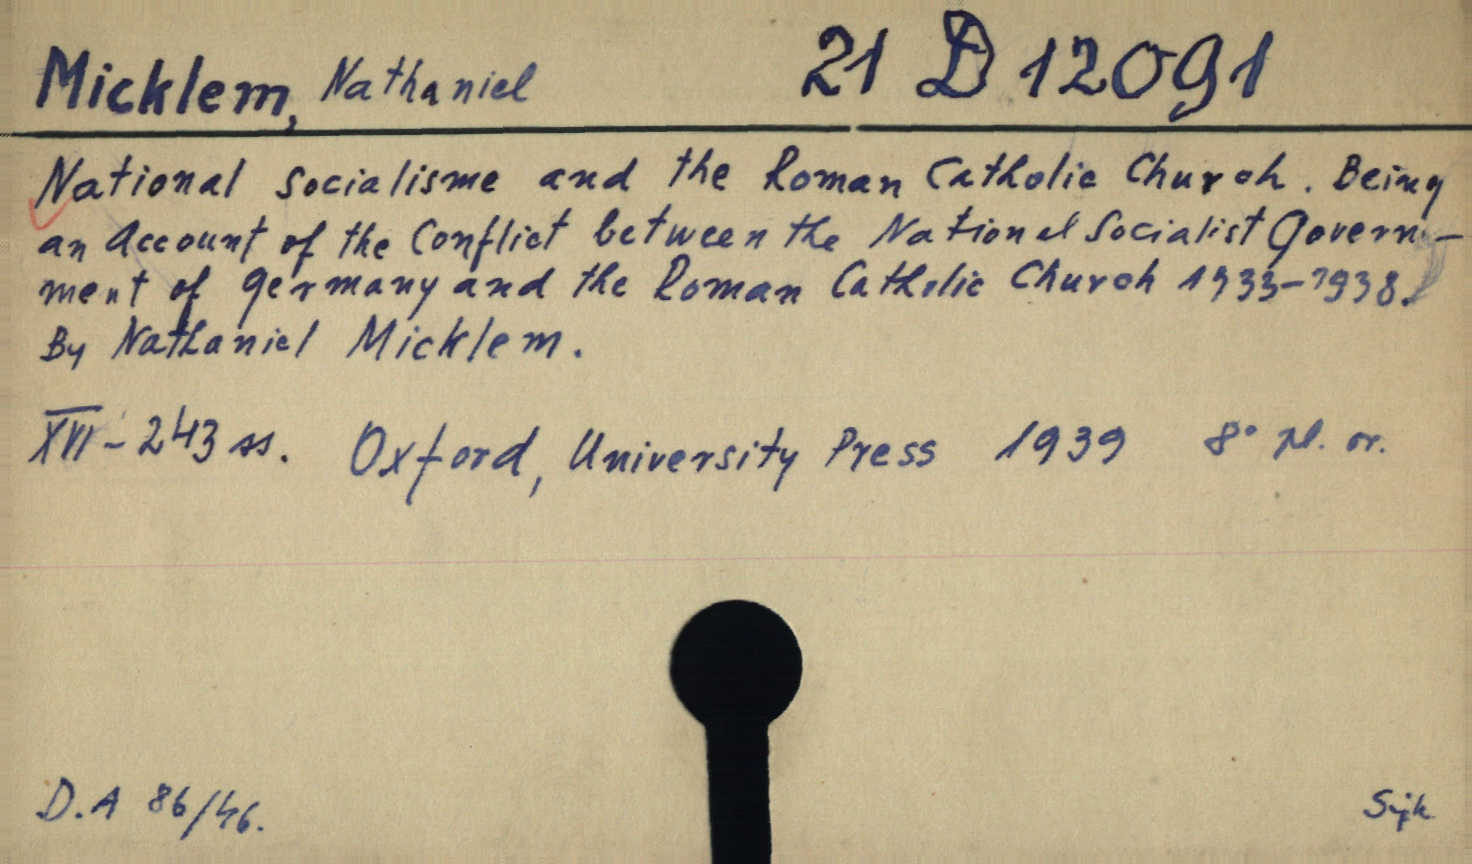 Micklem, Nathaniel 21 D 12091
National Socialisme and the Roman Catholic Church. Being
an Account of the Conflict between the National Socialist Govern-
ment of Germany and the Roman Catholic Church 1933-1938.
By Nathaniel Micklem.
XVI - 243 ss. Oxford, University Press 1939 8° pł. or.
D.A 86/46.